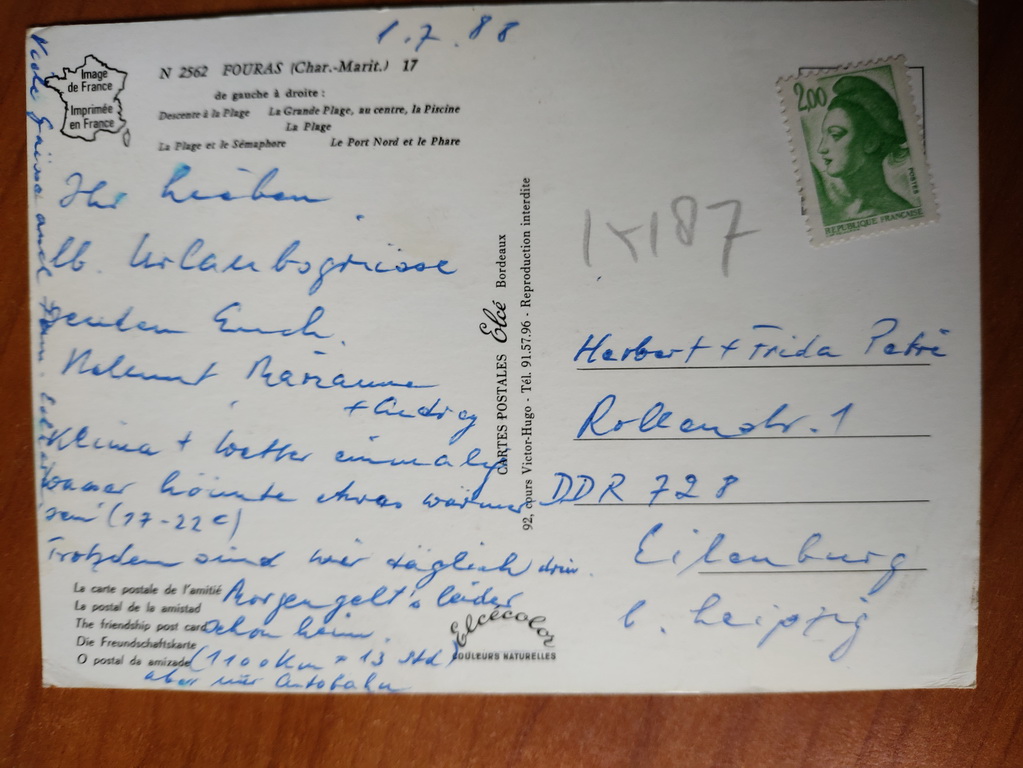 1.7.88
Image
de France
Imprimée
en France
N 2562 FOURAS (Char.-Marit.) 17
de gauche à droite :
Descente à la Plage La Grande Plage, au centre, la Piscine
La Plage
La Plage et le Sémaphore Le Port Nord et le Phare
Ihr Lieben
lb. Urlaubsgrüsse
senden Euch
Helmut Marianne
+
Klima + Wetter einmalig
Wasser könnte etwas wärmer
sein (17-22 C)
Trotzdem sind wir täglich drin.
Morgen geht's leider
schon heim.
(1100 km = 13 Std)
aber nur Autobahn
Viele Grüsse auch
La carte postale de l'amitié
La postal de la amistad
The friendship post card
Die Freundschaftskarte
O postal da amizade
Elcécolor
COULEURS NATURELLES
CARTES POSTALES Elcé Bordeaux
92, cours Victor-Hugo - Tél. 91.57.96 - Reproduction interdite
2,00
POSTES
REPUBLIQUE FRANÇAISE
Herbert + Frida Petri
Rollenstr. 1
DDR 728
Eilenburg
b. Leipzig